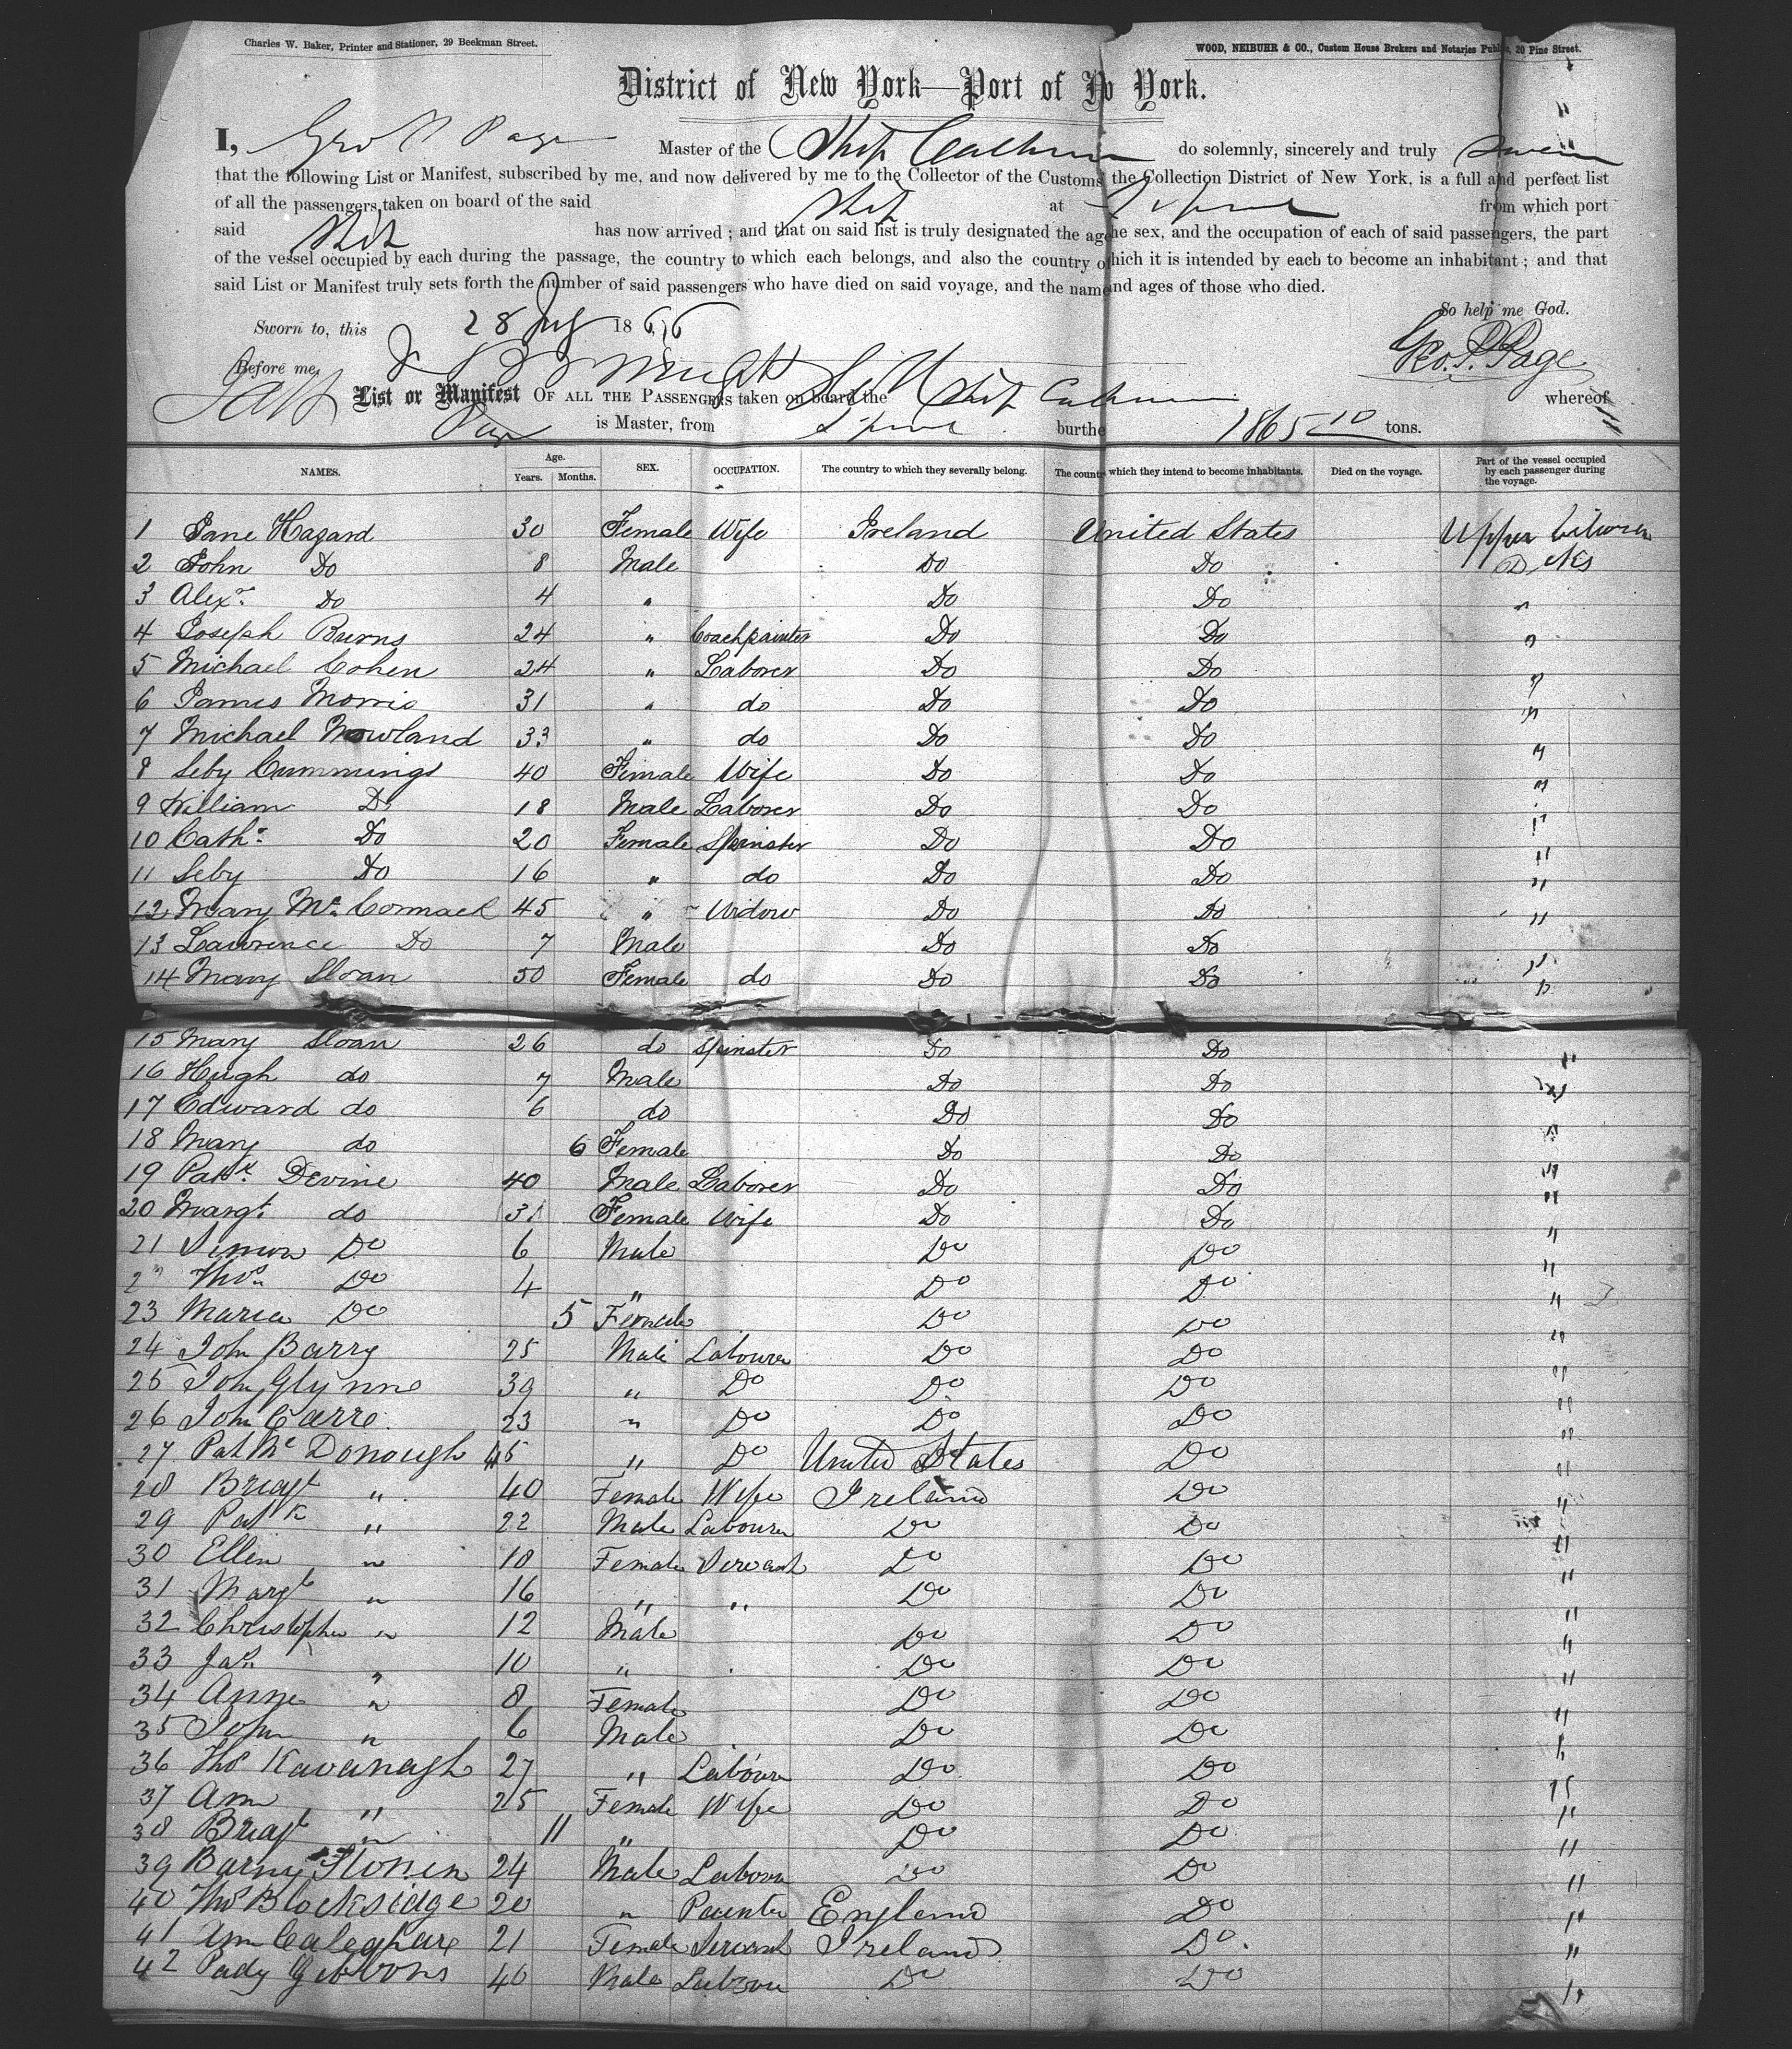 Charles W. Baker, Printer and Stationer, 29 Beekman Street.
WOOD, NEIBUHR & CO., Custom House Brokers and Notaries Public, 20 Pine Street.
District of New York—Port of N York.
I, Geo P Page Master of the Ship Calhoun do solemnly, sincerely and truly swear
that the following List or Manifest, subscribed by me, and now delivered by me to the Collector of the Customs the Collection District of New York, is a full and perfect list
of all the passengers taken on board of the said Ship at Lpool from which port
said Ship has now arrived; and that on said list is truly designated the age he sex, and the occupation of each of said passengers, the part
of the vessel occupied by each during the passage, the country to which each belongs, and also the country o hich it is intended by each to become an inhabitant; and that
said List or Manifest truly sets forth the number of said passengers who have died on said voyage, and the name nd ages of those who died.
So help me God.
Sworn to, this 28 July 1866
Geo. P. Page
Before me,
List or Manifest OF ALL THE PASSENGERS taken on board the Ship Calhoun whereof
Page is Master, from Lpool burthe 1865 10 tons.
NAMES. Age. Years. Months. SEX. OCCUPATION. The country to which they severally belong. The countr which they intend to become inhabitants. Died on the voyage. Part of the vessel occupied by each passenger during the voyage.
1 Jane Hazard 30 Female Wife Ireland United States Upper between
2 John Do 8 Male Do Do Decks
3 Alexr. Do 4 " Do Do "
4 Joseph Burns 24 " Coachpainter Do Do "
5 Michael Cohen 24 " Laborer Do Do "
6 James Morris 31 " do Do Do "
7 Michael Nowland 33 " do Do Do "
8 Seby Cummings 40 Female Wife Do Do "
9 William Do 18 Male Laborer Do Do "
10 Cathe. Do 20 Female Spinster Do Do "
11 Seby Do 16 " do Do Do "
12 Mary Mc. Cormack 45 " Widow Do Do "
13 Lawrence Do 7 Male Do Do "
14 Mary Sloan 50 Female do Do Do "
15 Mary Sloan 26 do Spinster Do Do "
16 Hugh do 7 Male Do Do "
17 Edward do 6 do Do Do "
18 Mary do 6 Female Do Do "
19 Patk. Devine 40 Male Laborer Do Do "
20 Margt. do 31 Female Wife Do Do "
21 Simon Do 6 Male Do Do "
2 Thos Do 4 " Do Do "
23 Maria Do 5 Female Do Do "
24 John Barry 25 Male Labourer Do Do "
25 John Glynne 39 " Do Do Do "
26 John Carre 23 " Do Do Do "
27 Pat Mc Donough 45 " Do United States Do "
28 Bridgt " 40 Female Wife Ireland Do "
29 Patk " 22 Male Labourer Do Do "
30 Ellen " 18 Female Servant Do Do "
31 Margt " 16 " " Do Do "
32 Christopher " 12 Male Do Do "
33 Jas " 10 " Do Do "
34 Anne " 8 Female Do Do "
35 John " 6 Male Do Do "
36 Thos Kavanagh 27 " Labourer Do Do "
37 Ann " 25 Female Wife Do Do "
38 Bridgt " 11 " Do Do "
39 Barny 24 Male Labourer Do Do "
40 Thos Blocksidge 20 " Painter England Do "
41 Ann Caleghare 21 Female Servant Ireland Do "
42 Pady Gibbons 40 Male Labour Do Do "